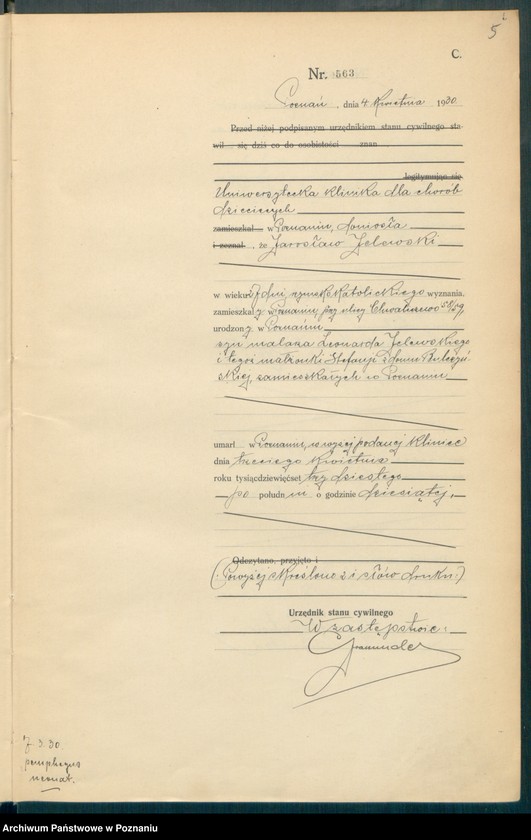 5
C.
Nr. 563
Poznań, dnia 4 Kwietnia 1930
Przed niżej podpisanym urzędnikiem stanu cywilnego sta-
wił się dziś co do osobistości znan
legitymując się
Uniwersytecka Klinika dla chorób
dziecięcych
zamieszkał w Poznaniu, doniosła
i zeznał , że Jarosław Jelewski
w wieku dni rzymsko Katolickiego wyznania,
zamieszkał y w Poznaniu, przy ulicy Chwaliszewo
urodzon y w Poznaniu
syn malarza Leonarda Jelewskiego
i tegoż małżonki Stefanji z domu
zamieszkałych w Poznaniu
umarł w Poznaniu, w wyżej podanej klinice
dnia trzeciego Kwietnia
roku tysiącdziewięćset trzydziestego
po połudn iu o godzinie dziesiątej.
Odczytano, przyjęto i
(Powyżej skreślono i słów druku.)
Urzędnik stanu cywilnego
W zastępstwie:
30.
pemphigus
neonat.
Archiwum Państwowe w Poznaniu